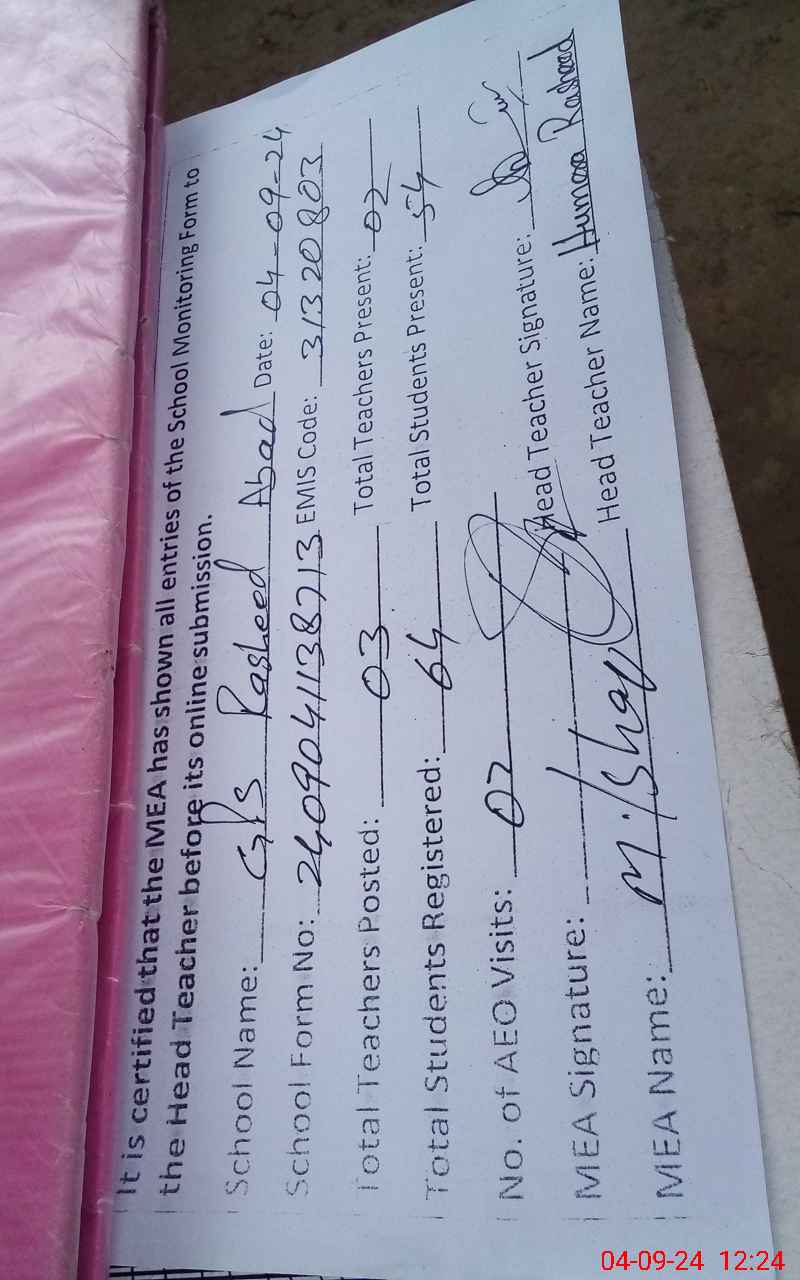 It is certified that the MEA has shown all entries of the School Monitoring Form to
the Head Teacher before its online submission.
School Name: GPS Rasheed Abad Date: 04-09-24
School Form No: 2409041138713 EMIS Code: 31320803
Total Teachers Posted: 03 Total Teachers Present: 02
Total Students Registered: 64 Total Students Present: 54
No. of AEO Visits: 02 Head Teacher Signature:
MEA Signature: Head Teacher Name: Humera Rasheed
MEA Name: M.
04-09-24 12:24